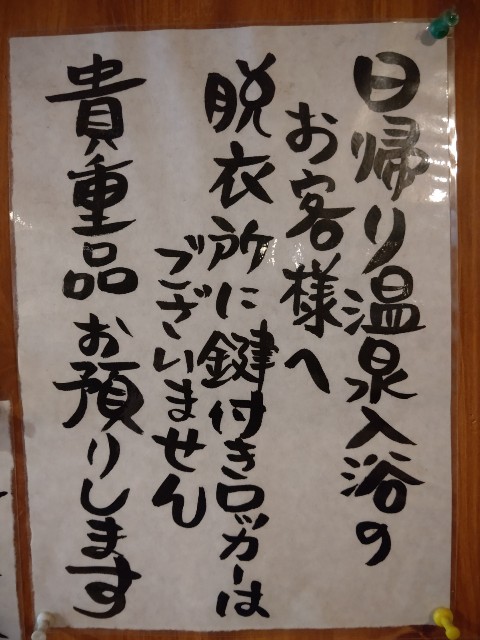 日帰り温泉入浴の
お客様へ
脱衣所に鍵付きロッカーは
ございません
貴重品お預りします